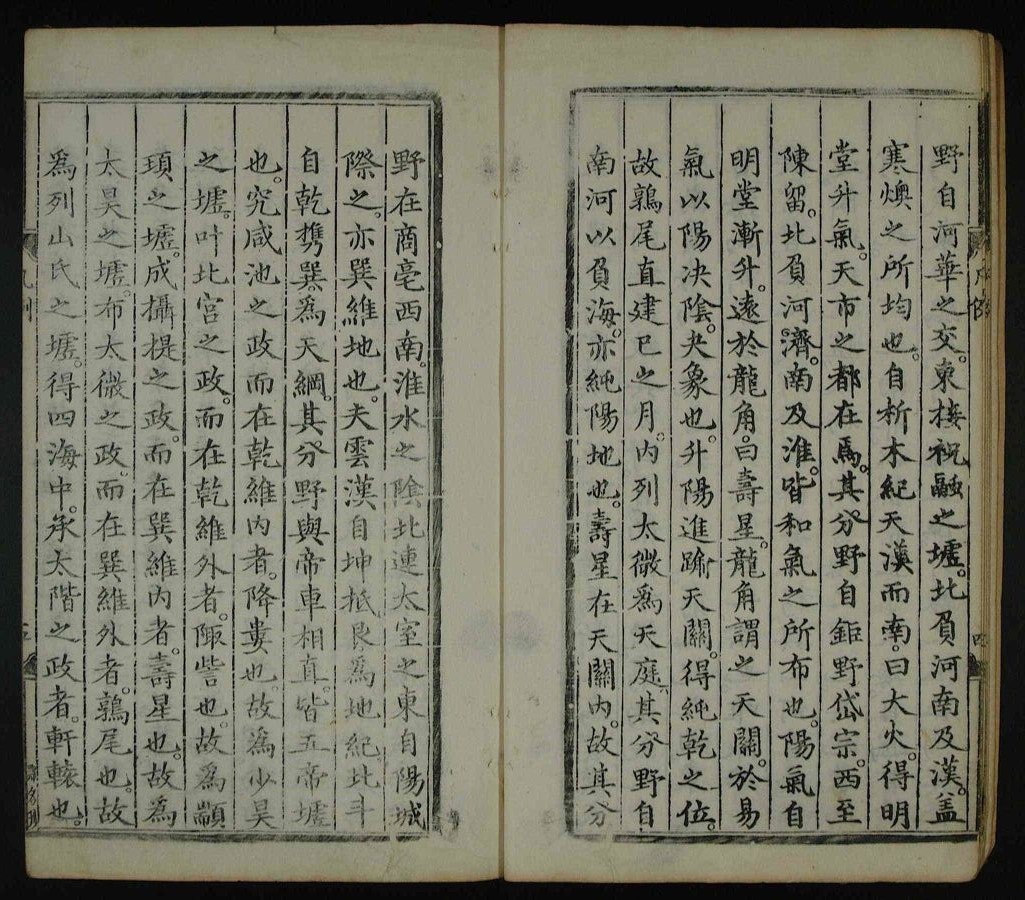 野自河華之交。東接祝融之墟。北負河南及漢。蓋
寒燠之所均也。自析木紀天漢而南。曰大火。得明
堂升氣。天市之都在焉。其分野自鉅野岱宗。西至
陳留。北負河濟。南及淮。皆和氣之所布也。陽氣自
明堂漸升。達於龍角。曰壽星。龍角謂之天關。於易
氣以陽决陰。夬象也。升陽進踰天關。得純乾之位。
故鶉尾直建巳之月。内列太微爲天庭。其分野自
南河以負海。亦純陽地也。壽星在天關内。故其分
野在商亳西南。淮水之陰北連太室之東自陽城
際之。亦巽維地也。夫雲漢自坤抵艮爲地紀。北斗
自乾携巽爲天綱。其分野與帝車相直。皆五帝墟
也。究咸池之政而在乾維内者。降婁也。故爲少昊
之墟。叶北宮之政。而在乾維外者。陬訾也。故爲顓
頊之墟。成攝提之政。而在巽維内者。壽星也。故爲
太昊之墟。布太微之政。而在巽維外者。鶉尾也。故
爲列山氏之墟。得四海中。承太階之政者。軒轅也。